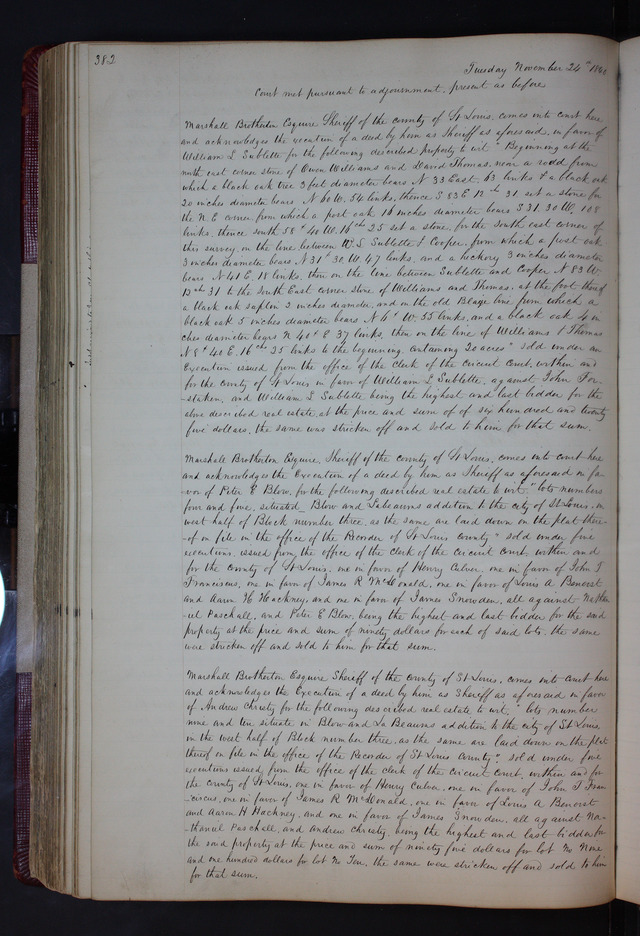 382
Tuesday November 24th 1840
Court met pursuant to adjournment, present as before
Marshall Brotherton Esquire Sheriff of the county of St Louis, comes into court here
and acknowledges the execution of a deed by him as Sheriff as aforesaid, in favor of
William L Sublette for the following described property to wit "Beginning at the
north east corner stone of Owen Williams and David Thomas, near a road from
which a black oak tree 3 feet diameter bears N 33 East, 63 links & a black oak
20 inches diameter bears N 60 W. 54 links, thence S 83 E 12 ch 31 set a stone for
the N. E corner from which a post oak 16 inches diameter bears S 31. 30 W. 108
links, thence south 58° 40 W. 16 ch 25 set a stone, for the south east corner of
this survey on the line between W. L Sublette & Cooper, from which a post oak
3 inches diameter bears N 31° 30 W, 47 links, and a hickory 3 inches diameter
bears N 41 E. 18 links, then on the line between Sublette and Cooper N 83 W.
12 ch 31 to the South East corner stone of Williams and Thomas, at the foot thereof
a black oak saplin 2 inches diameter, and on the old Blaze line from which a
black oak 5 inches diameter bears N 4° W. 55 links, and a black oak 4 in
ches diameter bears N 40° E 37 links, then on the line of Williams & Thomas
N 8° 40 E. 16 ch 25 links to the beginning, containing 20 acres" sold under an
Execution issued from the office of the Clerk of the circuit court, within and
for the county of St Louis in favor of William L Sublette, against John For-
staken, and William L Sublette being the highest and last bidder for the
above described real estate, at the price and sum of of six hundred and twenty
five dollars, the same was stricken off and sold to him for that sum.
Marshall Brotherton Esquire, Sheriff of the county of St Louis, comes into court here
and acknowledges the execution of a deed by him as Sheriff as aforesaid in fa-
vor of Peter E Blow, for the following described real estate to wit, "lots numbers
four and five, situated Blow and Labeaums addition to the city of St Louis, in
west half of Block number three, as the same are laid down on the plat there-
-of on file in the office of the Recorder of St Louis County" sold under five
executions, issued from the office of the clerk of the circuit court, within and
for the county of St Louis, one in favor of Henry Culver, one in favor of John T
Franciscus, one in favor of James R McDonald, one in favor of Louis A Benoist
and Aaron H Hackney, and one in favor of James Snowden, all against Nathan
-iel Paschall, and Peter E Blow, being the highest and last bidder for the said
property at the price and sum of ninety dollars for each of said lots, the same
were stricken off and sold to him for that sum.
Marshall Brotherton Esquire Sheriff of the county of St Louis, comes into court here
and acknowledges the Execution of a deed by him as Sheriff as aforesaid in favor
of Andrew Christy for the following described real estate to wit, "lots number
nine and ten situate in Blow and La Beaums addition to the city of St Louis,
in the west half of Block number three, as the same are laid down on the plat
thereof on file in the office of the Recorder of St Louis County" sold under five
executions issued from the office of the clerk of the circuit court, within and for
the county of St Louis, one in favor of Henry Culver, one in favor of John T Fran
-ciscus, one in favor of James R McDonald, one in favor of Louis A Benoist
and Aaron H Hackney, and one in favor of James Snowden, all against Na-
-thaniel Paschall, and Andrew Christy, being the highest and last bidder for
the said property at the price and sum of ninety five dollars for lot No Nine
and one hundred dollars for lot No Ten, the same were stricken off and sold to him
for that sum.